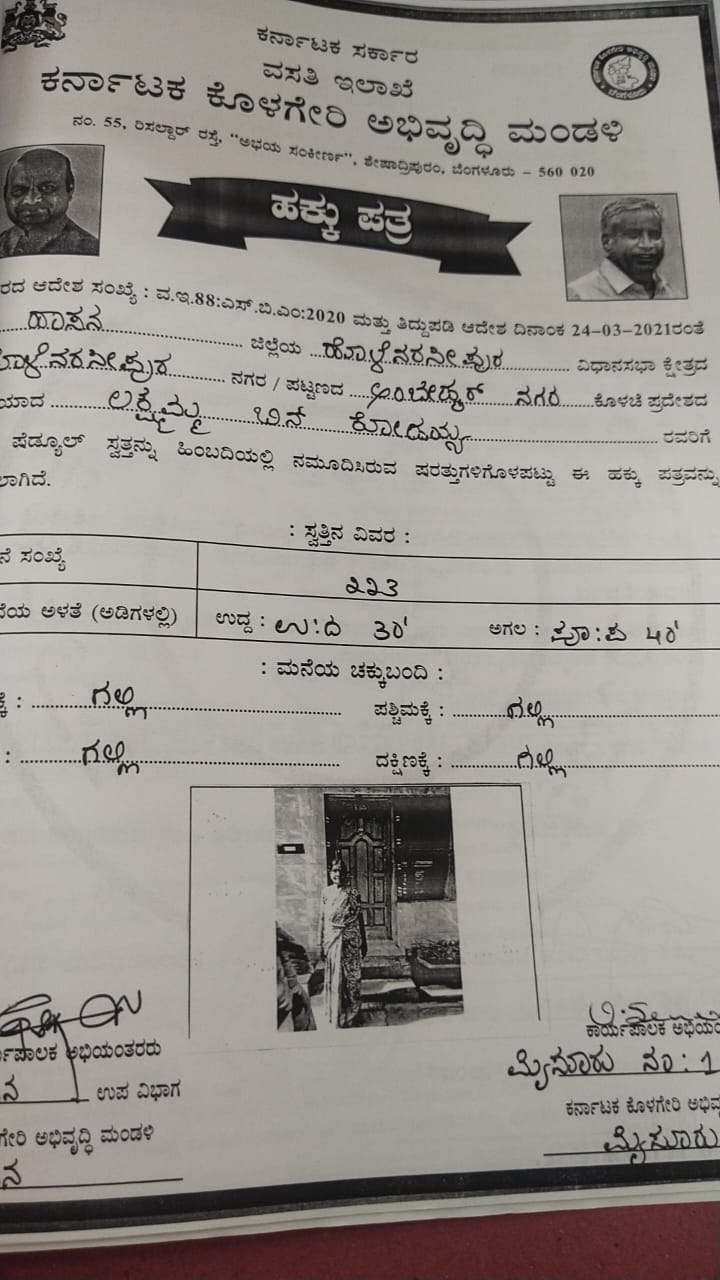 ಕರ್ನಾಟಕ ಸರ್ಕಾರ
ವಸತಿ ಇಲಾಖೆ
ಕರ್ನಾಟಕ ಕೊಳಗೇರಿ ಅಭಿವೃದ್ಧಿ ಮಂಡಳಿ
ನಂ. 55, ರಿಸಲ್ದಾರ್ ರಸ್ತೆ, "ಅಭಯ ಸಂಕೀರ್ಣ", ಶೇಷಾದ್ರಿಪುರಂ, ಬೆಂಗಳೂರು - 560 020
ಹಕ್ಕು ಪತ್ರ
ರದ ಆದೇಶ ಸಂಖ್ಯೆ : ವ.ಇ.88:ಎಸ್.ಬಿ.ಎಂ:2020 ಮತ್ತು ತಿದ್ದುಪಡಿ ಆದೇಶ ದಿನಾಂಕ 24-03-2021ರಂತೆ
ಹಾಸನ ಜಿಲ್ಲೆಯ ಹೊಳೆನರಸೀಪುರ ವಿಧಾನಸಭಾ ಕ್ಷೇತ್ರದ
ಳೆನರಸೀಪುರ ನಗರ / ಪಟ್ಟಣದ ಅಂಬೇಡ್ಕರ್ ನಗರ ಕೊಳಚೆ ಪ್ರದೇಶದ
ಯಾದ ಲಕ್ಷ್ಮಮ್ಮ ಬಿನ್ ಕೋಡಯ್ಯ ರವರಿಗೆ
ಷೆಡ್ಯೂಲ್ ಸ್ವತ್ತನ್ನು ಹಿಂಬದಿಯಲ್ಲಿ ನಮೂದಿಸಿರುವ ಷರತ್ತುಗಳಿಗೊಳಪಟ್ಟು ಈ ಹಕ್ಕು ಪತ್ರವನ್ನು
ಲಾಗಿದೆ.
: ಸ್ವತ್ತಿನ ವಿವರ :
ನೆ ಸಂಖ್ಯೆ ೨೨೩
ಯ ಅಳತೆ (ಅಡಿಗಳಲ್ಲಿ) ಉದ್ದ : ಉ:ದ 30' ಅಗಲ : ಪೂ:ಪ 40'
: ಮನೆಯ ಚಕ್ಕುಬಂದಿ :
ಕ್ಕೆ : ಗಲ್ಲಿ ಪಶ್ಚಿಮಕ್ಕೆ : ಗಲ್ಲಿ
: ಗಲ್ಲಿ ದಕ್ಷಿಣಕ್ಕೆ : ಗಲ್ಲಿ
ರ್ಯಪಾಲಕ ಅಭಿಯಂತರರು
ನ ಉಪ ವಿಭಾಗ
ಗೇರಿ ಅಭಿವೃದ್ಧಿ ಮಂಡಳಿ
ನ
ಕಾರ್ಯಪಾಲಕ ಅಭಿಯಂ
ಮೈಸೂರು ನಂ: 1
ಕರ್ನಾಟಕ ಕೊಳಗೇರಿ ಅಭಿವೃ
ಮೈಸೂರು